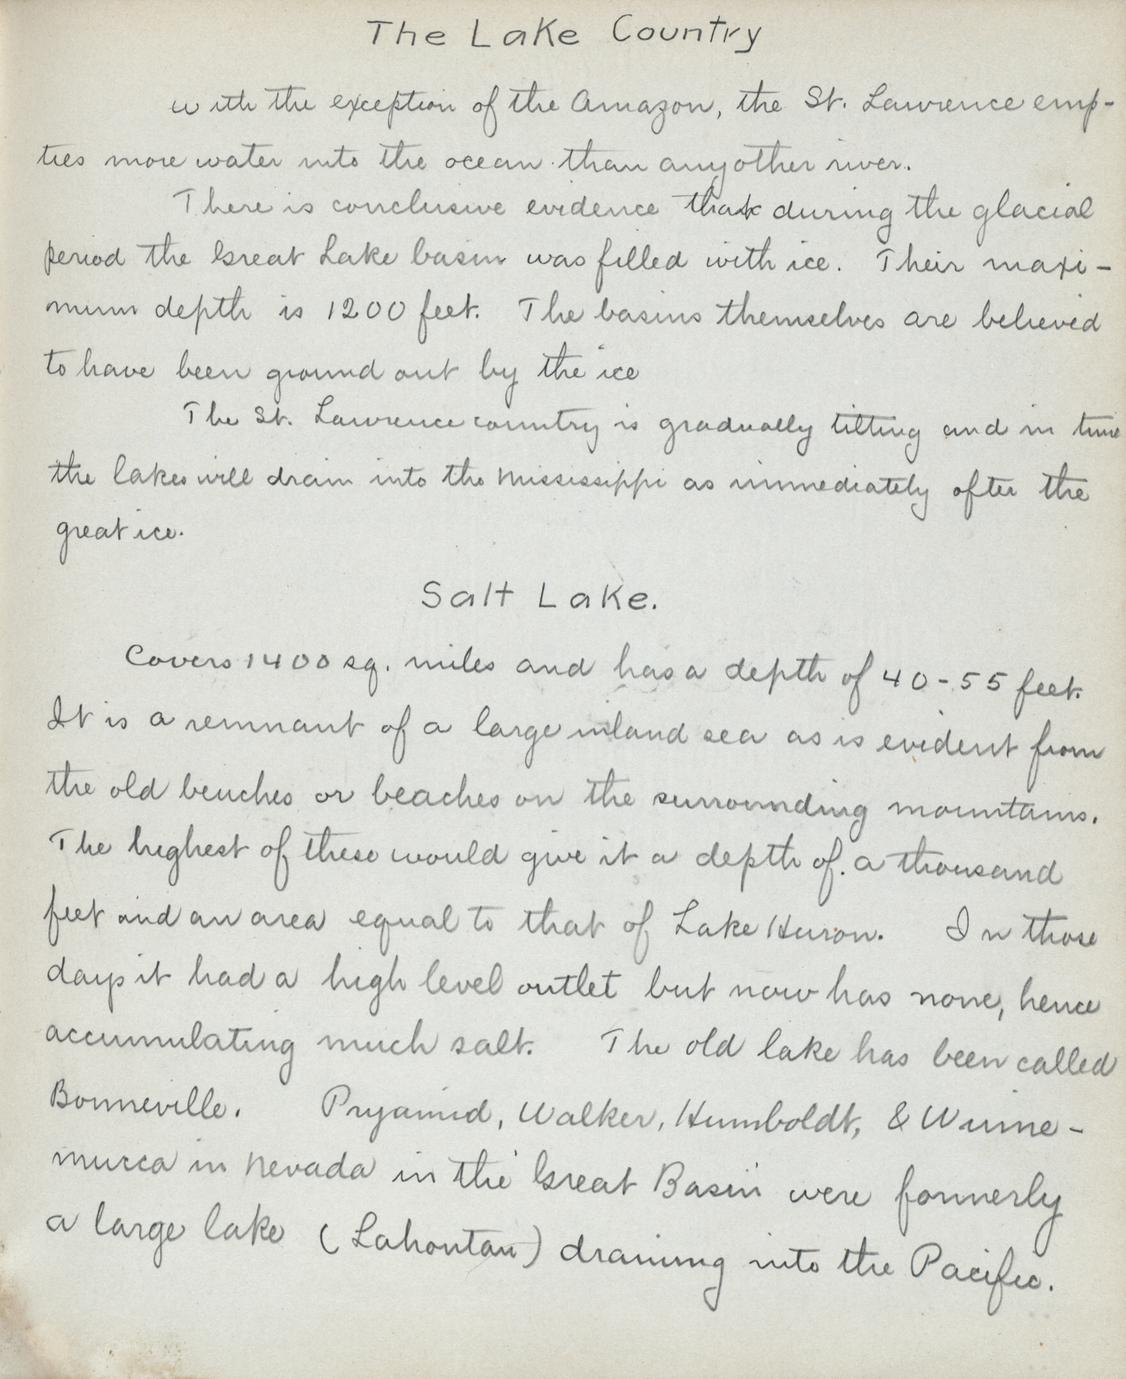 The Lake Country
with the exception of the Amazon, the St. Lawrence emp-
ties more water into the ocean than any other river.
There is conclusive evidence that during the glacial
period the Great Lake basin was filled with ice. Their maxi-
mum depth is 1200 feet. The basins themselves are believed
to have been ground out by the ice
The St. Lawrence country is gradually tilting and in time
the lakes will drain into the Mississippi as immediately after the
great ice.
Salt Lake.
Covers 1400 sq. miles and has a depth of 40-55 feet.
It is a remnant of a large inland sea as is evident from
the old benches or beaches on the surrounding mountains.
The highest of these would give it a depth of a thousand
feet and an area equal to that of Lake Huron. In those
days it had a high level outlet but now has none, hence
accumulating much salt. The old lake has been called
Bonneville. Pryamid, Walker, Humboldt, & Winne-
mucca in Nevada in the Great Basin were formerly
a large lake (Lahontan) draining into the Pacific.